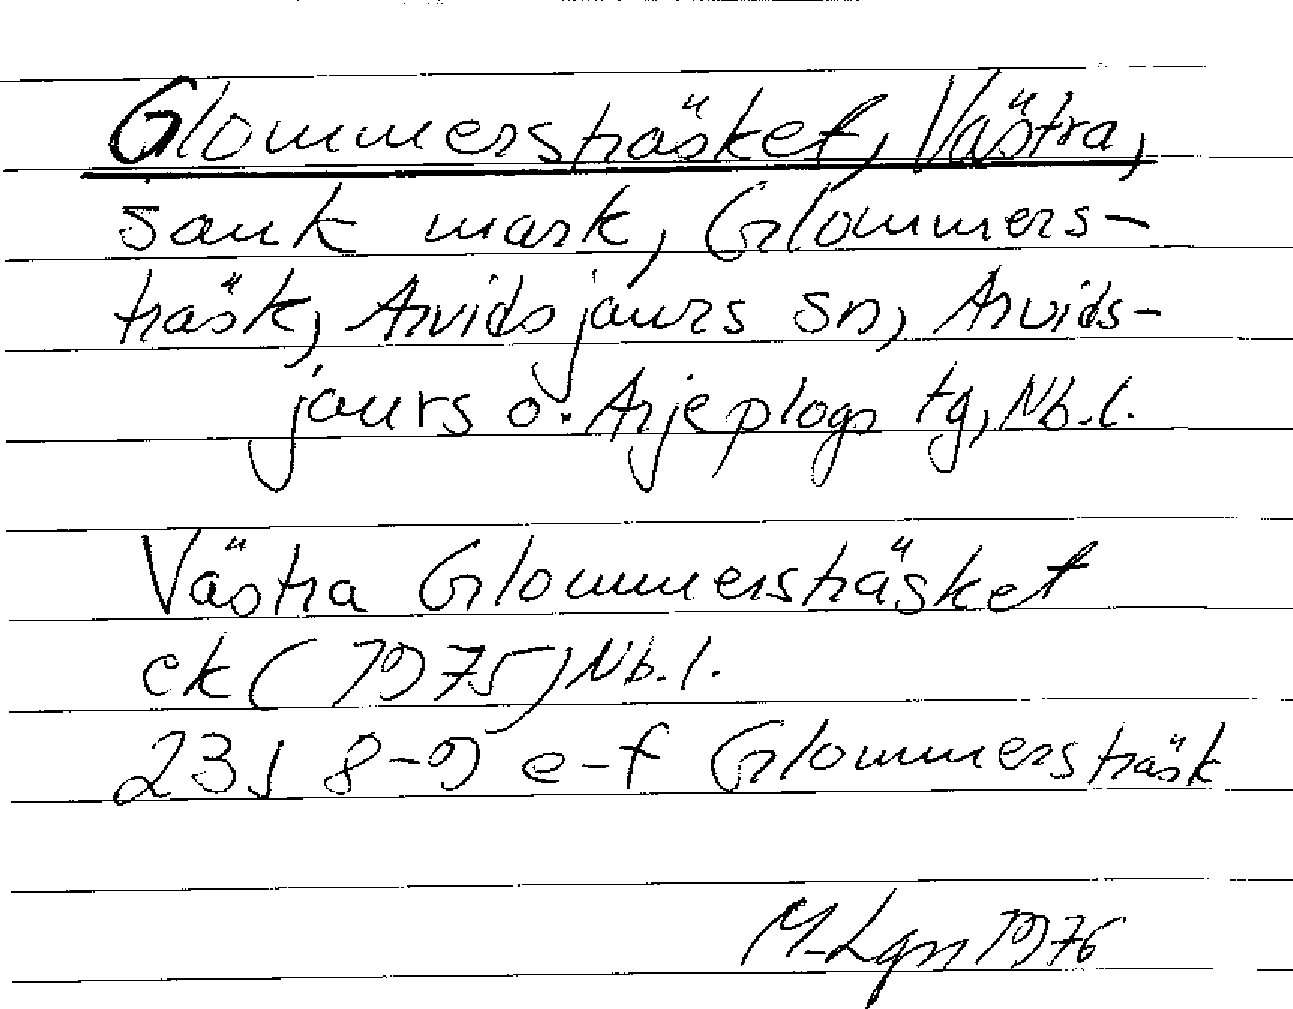 Glommersträsket, Västra,
sank mark, Glommers-
träsk, Arvidsjaurs sn, Arvids-
jaurs o. Arjeplogs tg, Nb.l.
Västra Glommersträsket
ek (1975) Nb.l.
23J 8-9 e-f Glommersträsk
M. Lgn 1976